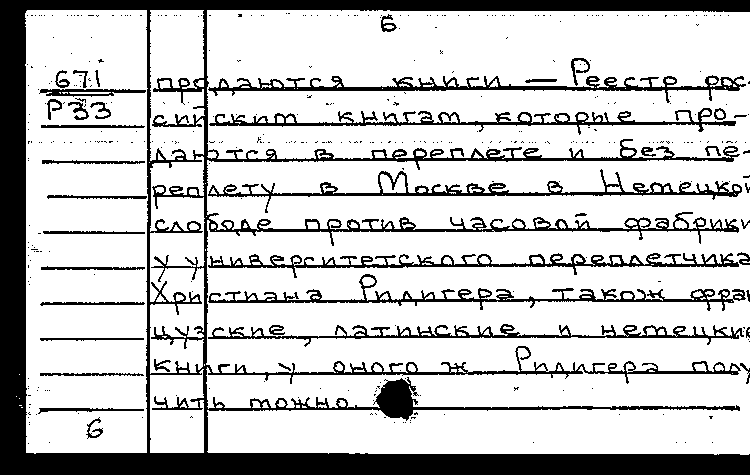 6
671
Р33
продаются книги. — Реестр рос-
сийским книгам, которые про-
даются в переплете и без пе-
реплету в Москве в Немецкой
слободе против часовой фабрики
у университетского переплетчика
Христиана Ридигера, також фран
цузские, латинские и немецкие
книги, у оного ж Ридигера полу
чить можно.
6